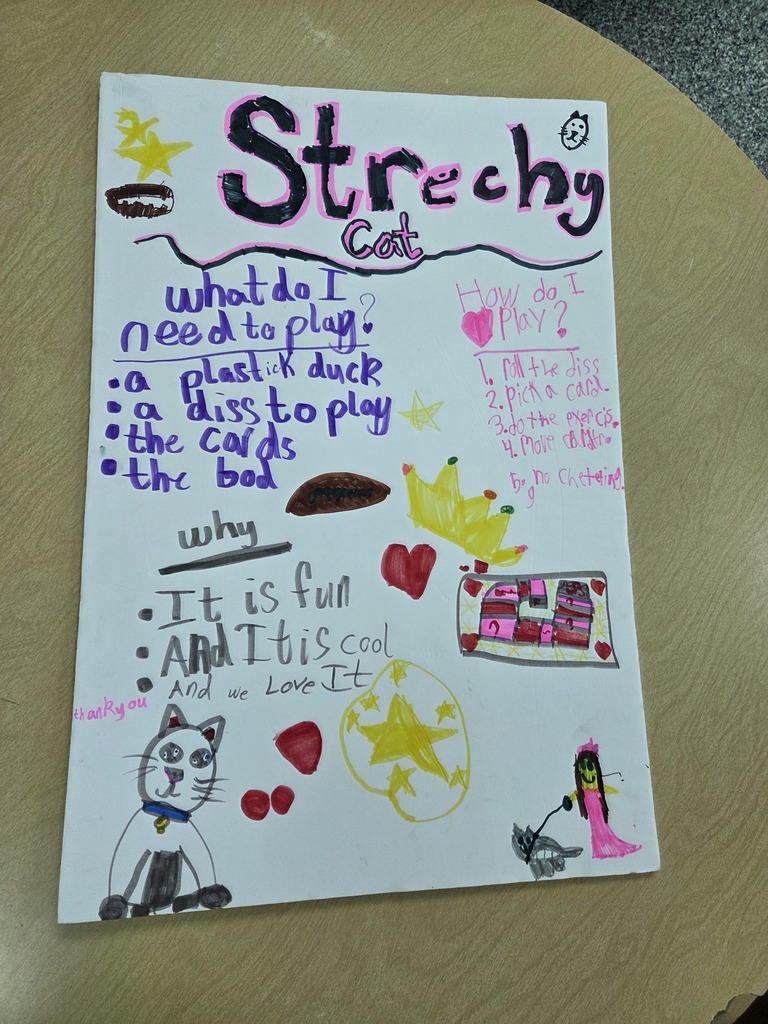 Strechy
cat
what do I
need to play?
• a plastick duck
• a diss to play
• the cards
• the bod
How do I
Play?
1. roll the diss
2. pick a card.
3. do the exercis.
4. move
5. no
why
• It is fun
• And It is cool
• And we Love It
thankyou